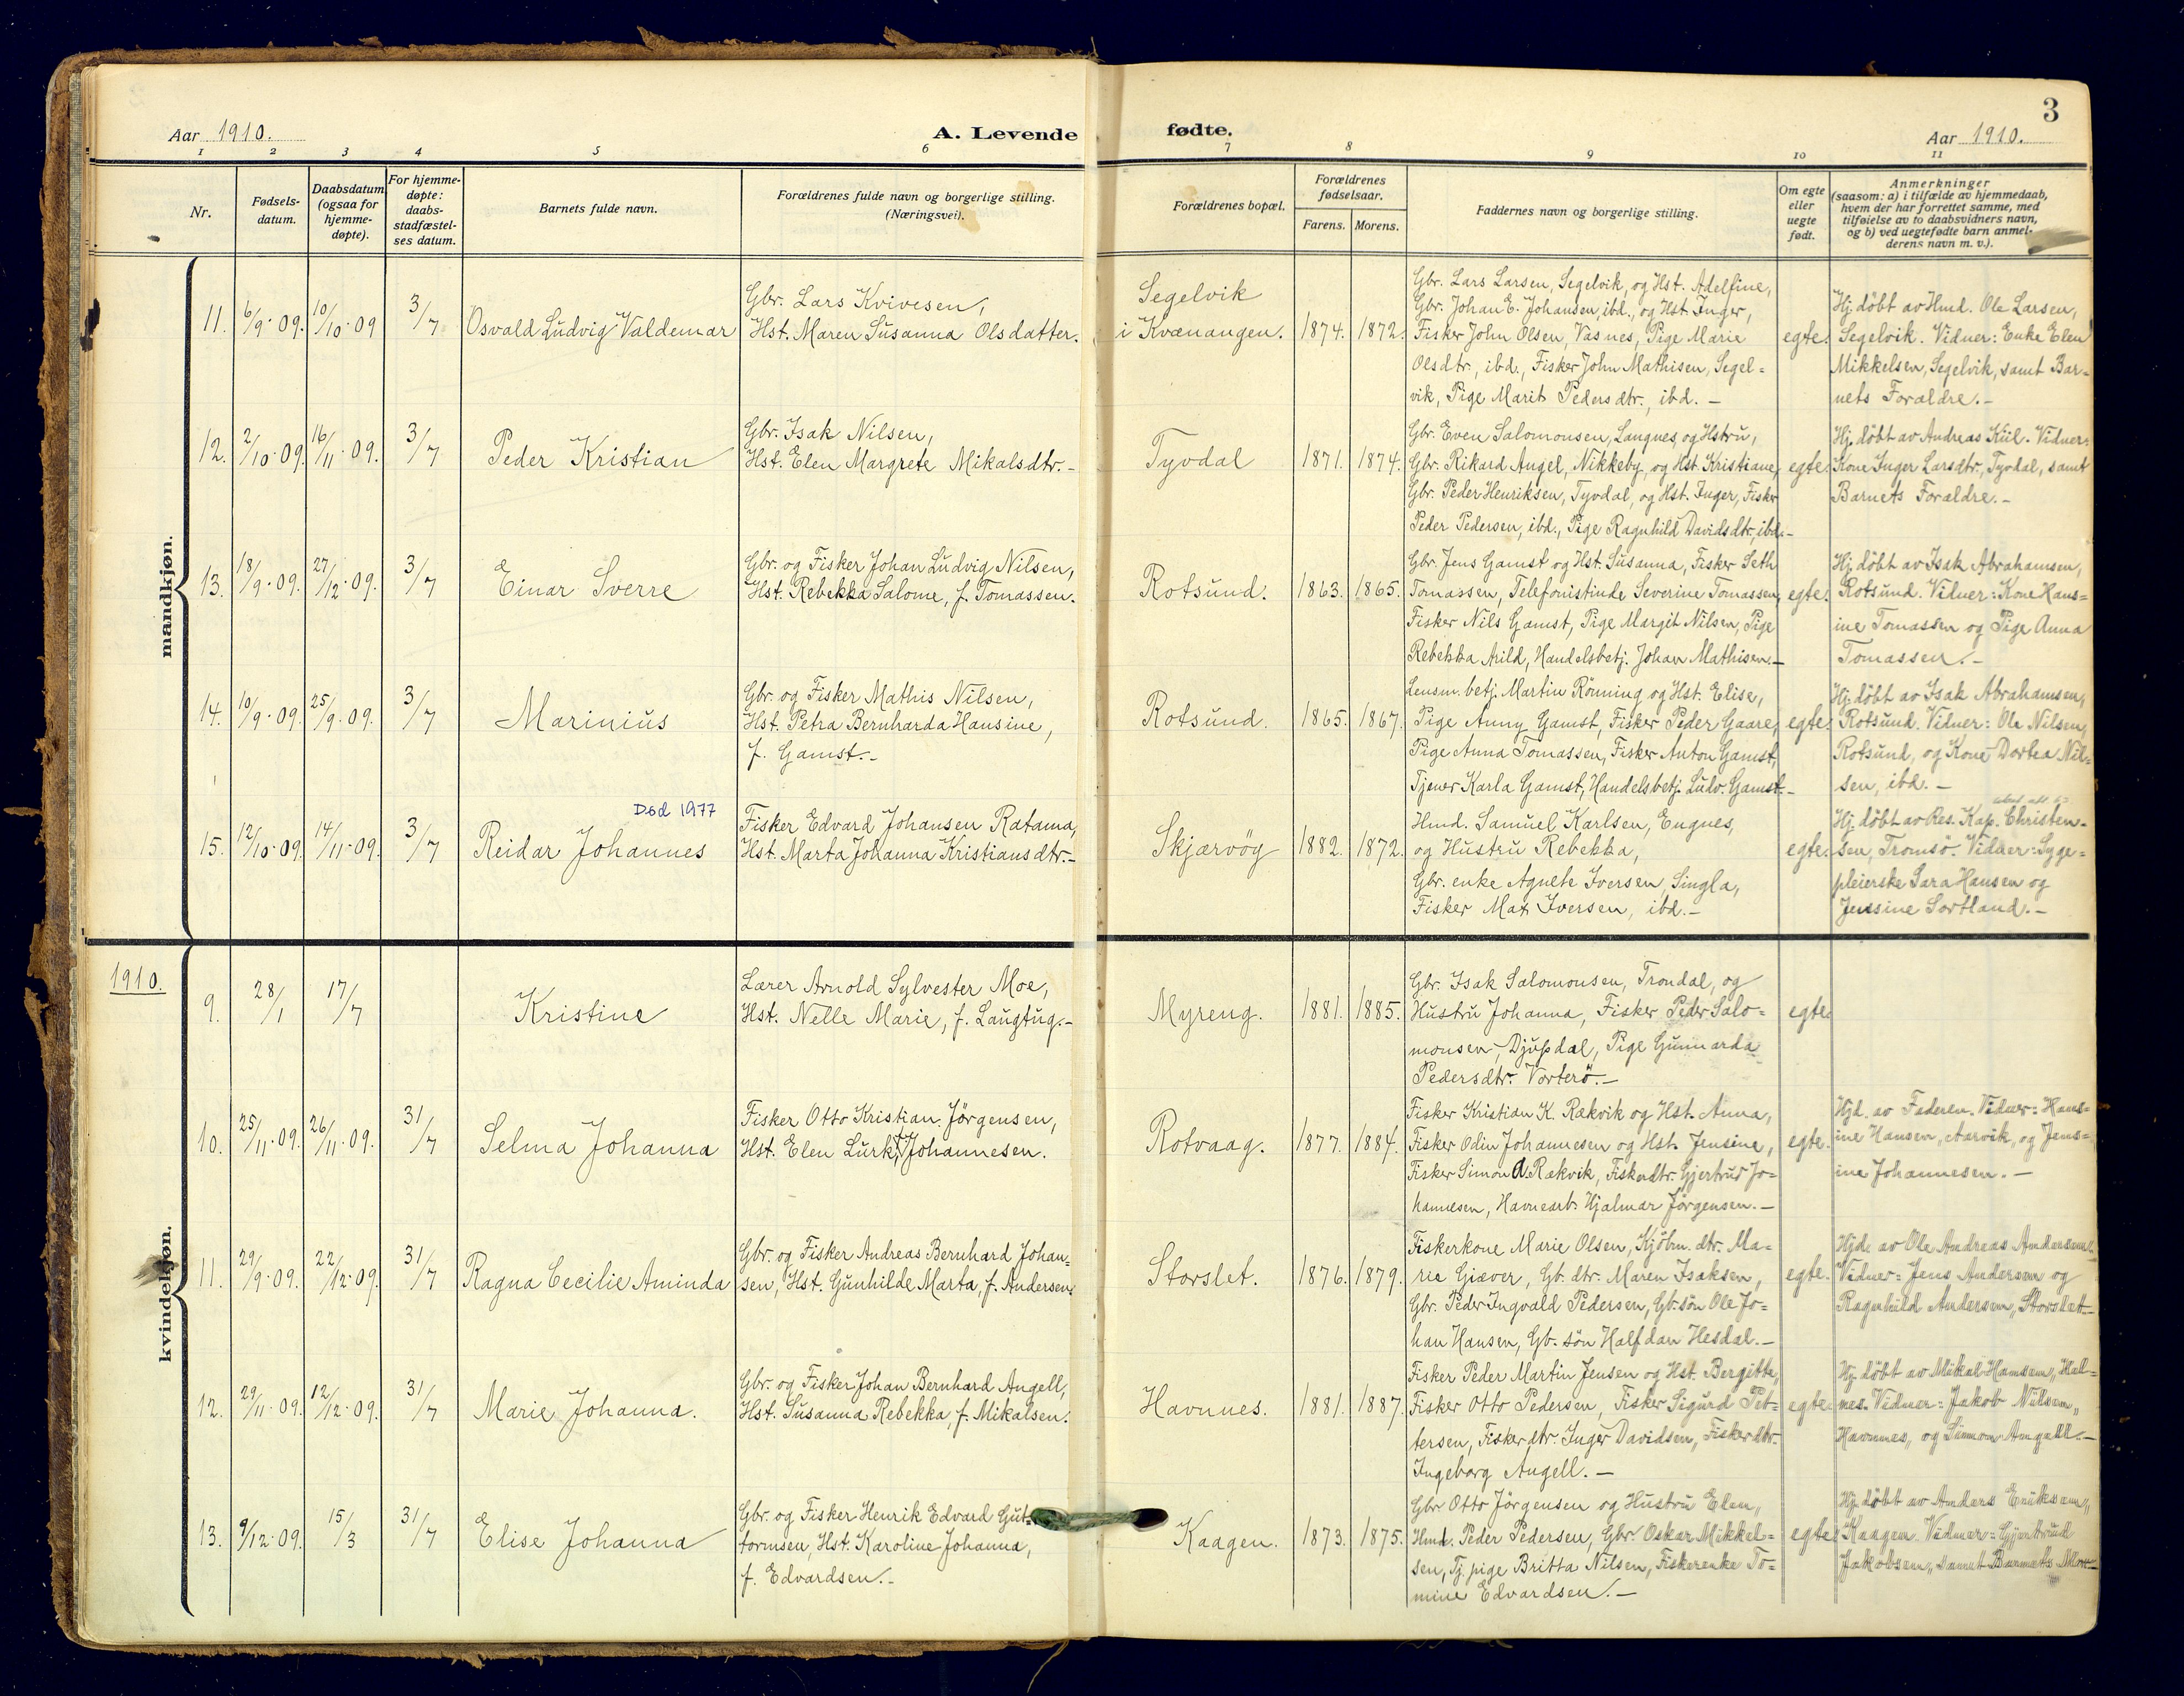 3
Aar 1910. A. Levende fødte. Aar 1910.
1 2 3 4 5 6 7 8 9 10 11
Nr.
Fødsels-
datum.
Daabsdatum
(ogsaa for
hjemme-
døpte).
For hjemme-
døpte:
daabs-
stadfæstel-
ses datum.
Barnets fulde navn.
Forældrenes fulde navn og borgerlige stilling.
(Næringsvei).
Forældrenes bopæl.
Forældrenes
fødselsaar.
Farens. Morens.
Faddernes navn og borgerlige stilling.
Om egte
eller
uegte
født.
Anmerkninger
(saasom: a) i tilfælde av hjemmedaab,
hvem der har forrettet samme, med
tilføielse av to daabsvidners navn,
og b) ved uegtefødte barn anmel-
derens navn m. v.).
mandkjøn.
11. 6/9·09. 10/10·09 3/7 Osvald Ludvig Valdemar
Gbr. Lars Kvivesen,
Hst. Maren Susanna Olsdatter.
Segelvik
i Kvænangen. 1874. 1872.
Gbr. Lars Larsen, Segelvik, og Hst. Adelfine,
Gbr. Johan E. Johansen, ibd., og Hst. Inger,
Fisker John Olsen, Vasnes, Pige Marie
Olsdtr., ibd., Fisker John Mathisen, Segel=
vik, Pige Marit Pedersdtr., ibd. –
egte.
Hj. døbt av Hmd. Ole Larsen,
Segelvik. Vidner: Enke Elen
Mikkelsen, Segelvik, samt Bar=
nets Forældre. –
12. 2/10·09. 16/11·09. 3/7 Peder Kristian
Gbr. Isak Nilsen,
Hst. Elen Margrete Mikalsdtr. –
Tyvdal 1871. 1874.
Gbr. Even Salomonsen, Laugnes, og Hstru,
Gbr. Rikard Angel, Nikkeby, og Hst. Kristiane,
Gbr. Peder Henriksen, Tyvdal, og Hst. Inger, Fisker
Peder Pedersen, ibd., Pige Ragnhild Davidsdtr., ibd. –
egte.
Hj. døbt av Andreas Kiil. Vidner:
Kone Inger Larsdtr., Tyvdal, samt
Barnets Forældre. –
13. 18/9·09. 27/12·09. 3/7 Einar Sverre
Gbr. og Fisker Johan Ludvig Nilsen,
Hst. Rebekka Salome, f. Tomassen.
Rotsund. 1863. 1865.
Gbr. Jens Gamst og Hst. Susanna, Fisker Seth
Tomassen, Telefonistinde Severine Tomassen,
Fisker Nils Gamst, Pige Margit Nilsen, Pige
Rebekka Arild, Handelsbetj. Johan Mathisen. –
egte.
Hj. døbt av Isak Abrahamsen,
Rotsund. Vidner: Kone Hans=
ine Tomassen og Pige Anna
Tomassen. –
14. 10/9·09. 25/9·09. 3/7 Marinius
Gbr. og Fisker Mathis Nilsen,
Hst. Petra Bernharda Hansine,
f. Gamst. –
Rotsund. 1865. 1867.
Lensm. betj. Martin Rönning og Hst. Elise,
Pige Anny Gamst, Fisker Peder Gaare,
Pige Anna Tomassen, Fisker Anton Gamst,
Tjener Karla Gamst, Handelsbetj. Ludv. Gamst. –
egte.
Hj. døbt av Isak Abrahamsen,
Rotsund. Vidner: Ole Nilsen,
Rotsund, og Kone Dortea Nil=
sen, ibd. –
Död 1977
15. 12/10·09. 14/11·09. 3/7 Reidar Johannes
Fisker Edvard Johansen Ratama,
Hst. Marta Johanna Kristiansdtr. –
Skjærvöy 1882. 1872.
Hmd. Samuel Karlsen, Eugnes,
og Hustru Rebekka,
Gbr. enke Agnete Iversen, Singla,
Fisker Max Iversen, ibd. –
egte.
Hj. døbt av Res. Kap. Christen-
sen, Tromsö. Vidner: Syge=
pleierske Sara Hansen og
Jensine Sortland. –
1910.
kvindekjøn.
9. 28/1 17/7 Kristine
Lærer Arnold Sylvester Moe,
Hst. Nelle Marie, f. Laugtug. –
Myreng. 1881. 1885.
Gbr. Isak Salomonsen, Trondal, og
Hustru Johanna, Fisker Peder Salo=
monsen, Djupdal, Pige Gunnarda
Pedersdtr. Vorterö. –
egte.
10. 25/11·09. 26/11·09. 31/7 Selma Johanna
Fisker Otto Kristian Jörgensen,
Hst. Elen Lurk, f. Johannesen.
Rotvaag. 1877. 1884.
Fisker Kristian K. Rækvik og Hst. Anna,
Fisker Odin Johannesen og Hst. Jensine,
Fisker Simon A. Rækvik, Fiskerdtr. Gjertrud Jo=
hannesen, Havnearb. Hjalmar Jörgensen. –
egte.
Hjd. av Faderen. Vidner: Hans=
ine Hansen, Aarvik, og Jens=
ine Johannesen. –
11. 29/9·09. 22/12·09. 31/7 Ragna Cecilie Aminda
Gbr. og Fisker Andreas Bernhard Johan=
sen, Hst. Gunhilde Marta, f. Andersen.
Storslet. 1876. 1879.
Fiskerkone Marie Olsen, Kjöbm. dtr. Ma=
rie Giæver, Gb. dtr. Maren Isaksen,
Gbr. Peder Ingvald Pedersen, Gb. sön Ole Jo=
han Hansen, Gb. sön Halfdan Hesdal. –
egte.
Hjd. av Ole Andreas Andersen.
Vidner: Jens Andersen og
Ragnhild Andersen, Storslet. –
12. 29/11·09. 12/12·09. 31/7 Marie Johanna.
Gbr. og Fisker Johan Bernhard Angell,
Hst. Susanna Rebekka, f. Mikalsen.
Havnnes. 1881. 1887.
Fisker Peder Martin Jensen og Hst. Bergitte,
Fisker Otto Pedersen, Fisker Sigurd Pet=
tersen, Fiskerdtr. Inger Davidsen, Fiskerdtr.
Ingeborg Angell. –
egte.
Hj. døbt av Mikal Hansen, Hal=
nes. Vidner: Jakob Nilsen,
Havnnes, og Simon Angell. –
13. 9/12·09. 15/3 31/7 Elise Johanna
Gbr. og Fisker Henrik Edvard Gut=
tormsen, Hst. Karoline Johanna,
f. Edvardsen. –
Kaagen. 1873. 1875.
Gbr Otto Jörgensen og Hustru Elen,
Hmd. Peder Pedersen, Gbr. Oskar Mikkel=
sen, Tj. pige Britta Nilsen, Fiskerenke To=
mine Edvardsen. –
egte.
Hj. døbt av Anders Eriksen,
Kaagen. Vidner: Gjertrud
Jakobsen, samt Barnets Mor –